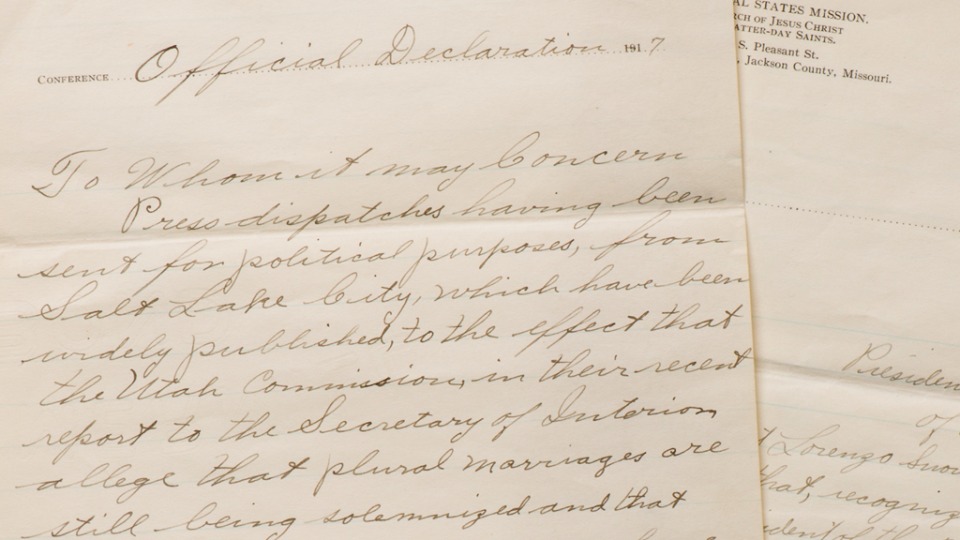 CONFERENCE Official Declaration 1917
To Whom it may Concern
Press dispatches having been
sent for political purposes, from
Salt Lake City, which have been
widely published, to the effect that
the Utah Commission, in their recent
report to the Secretary of Interior
allege that plural marriages are
still being solemnized and that
AL STATES MISSION.
RCH OF JESUS CHRIST
ATTER-DAY SAINTS.
S. Pleasant St.
Jackson County, Missouri.
Presiden
of
Lorenzo Snow
that, recogniz
ident of the